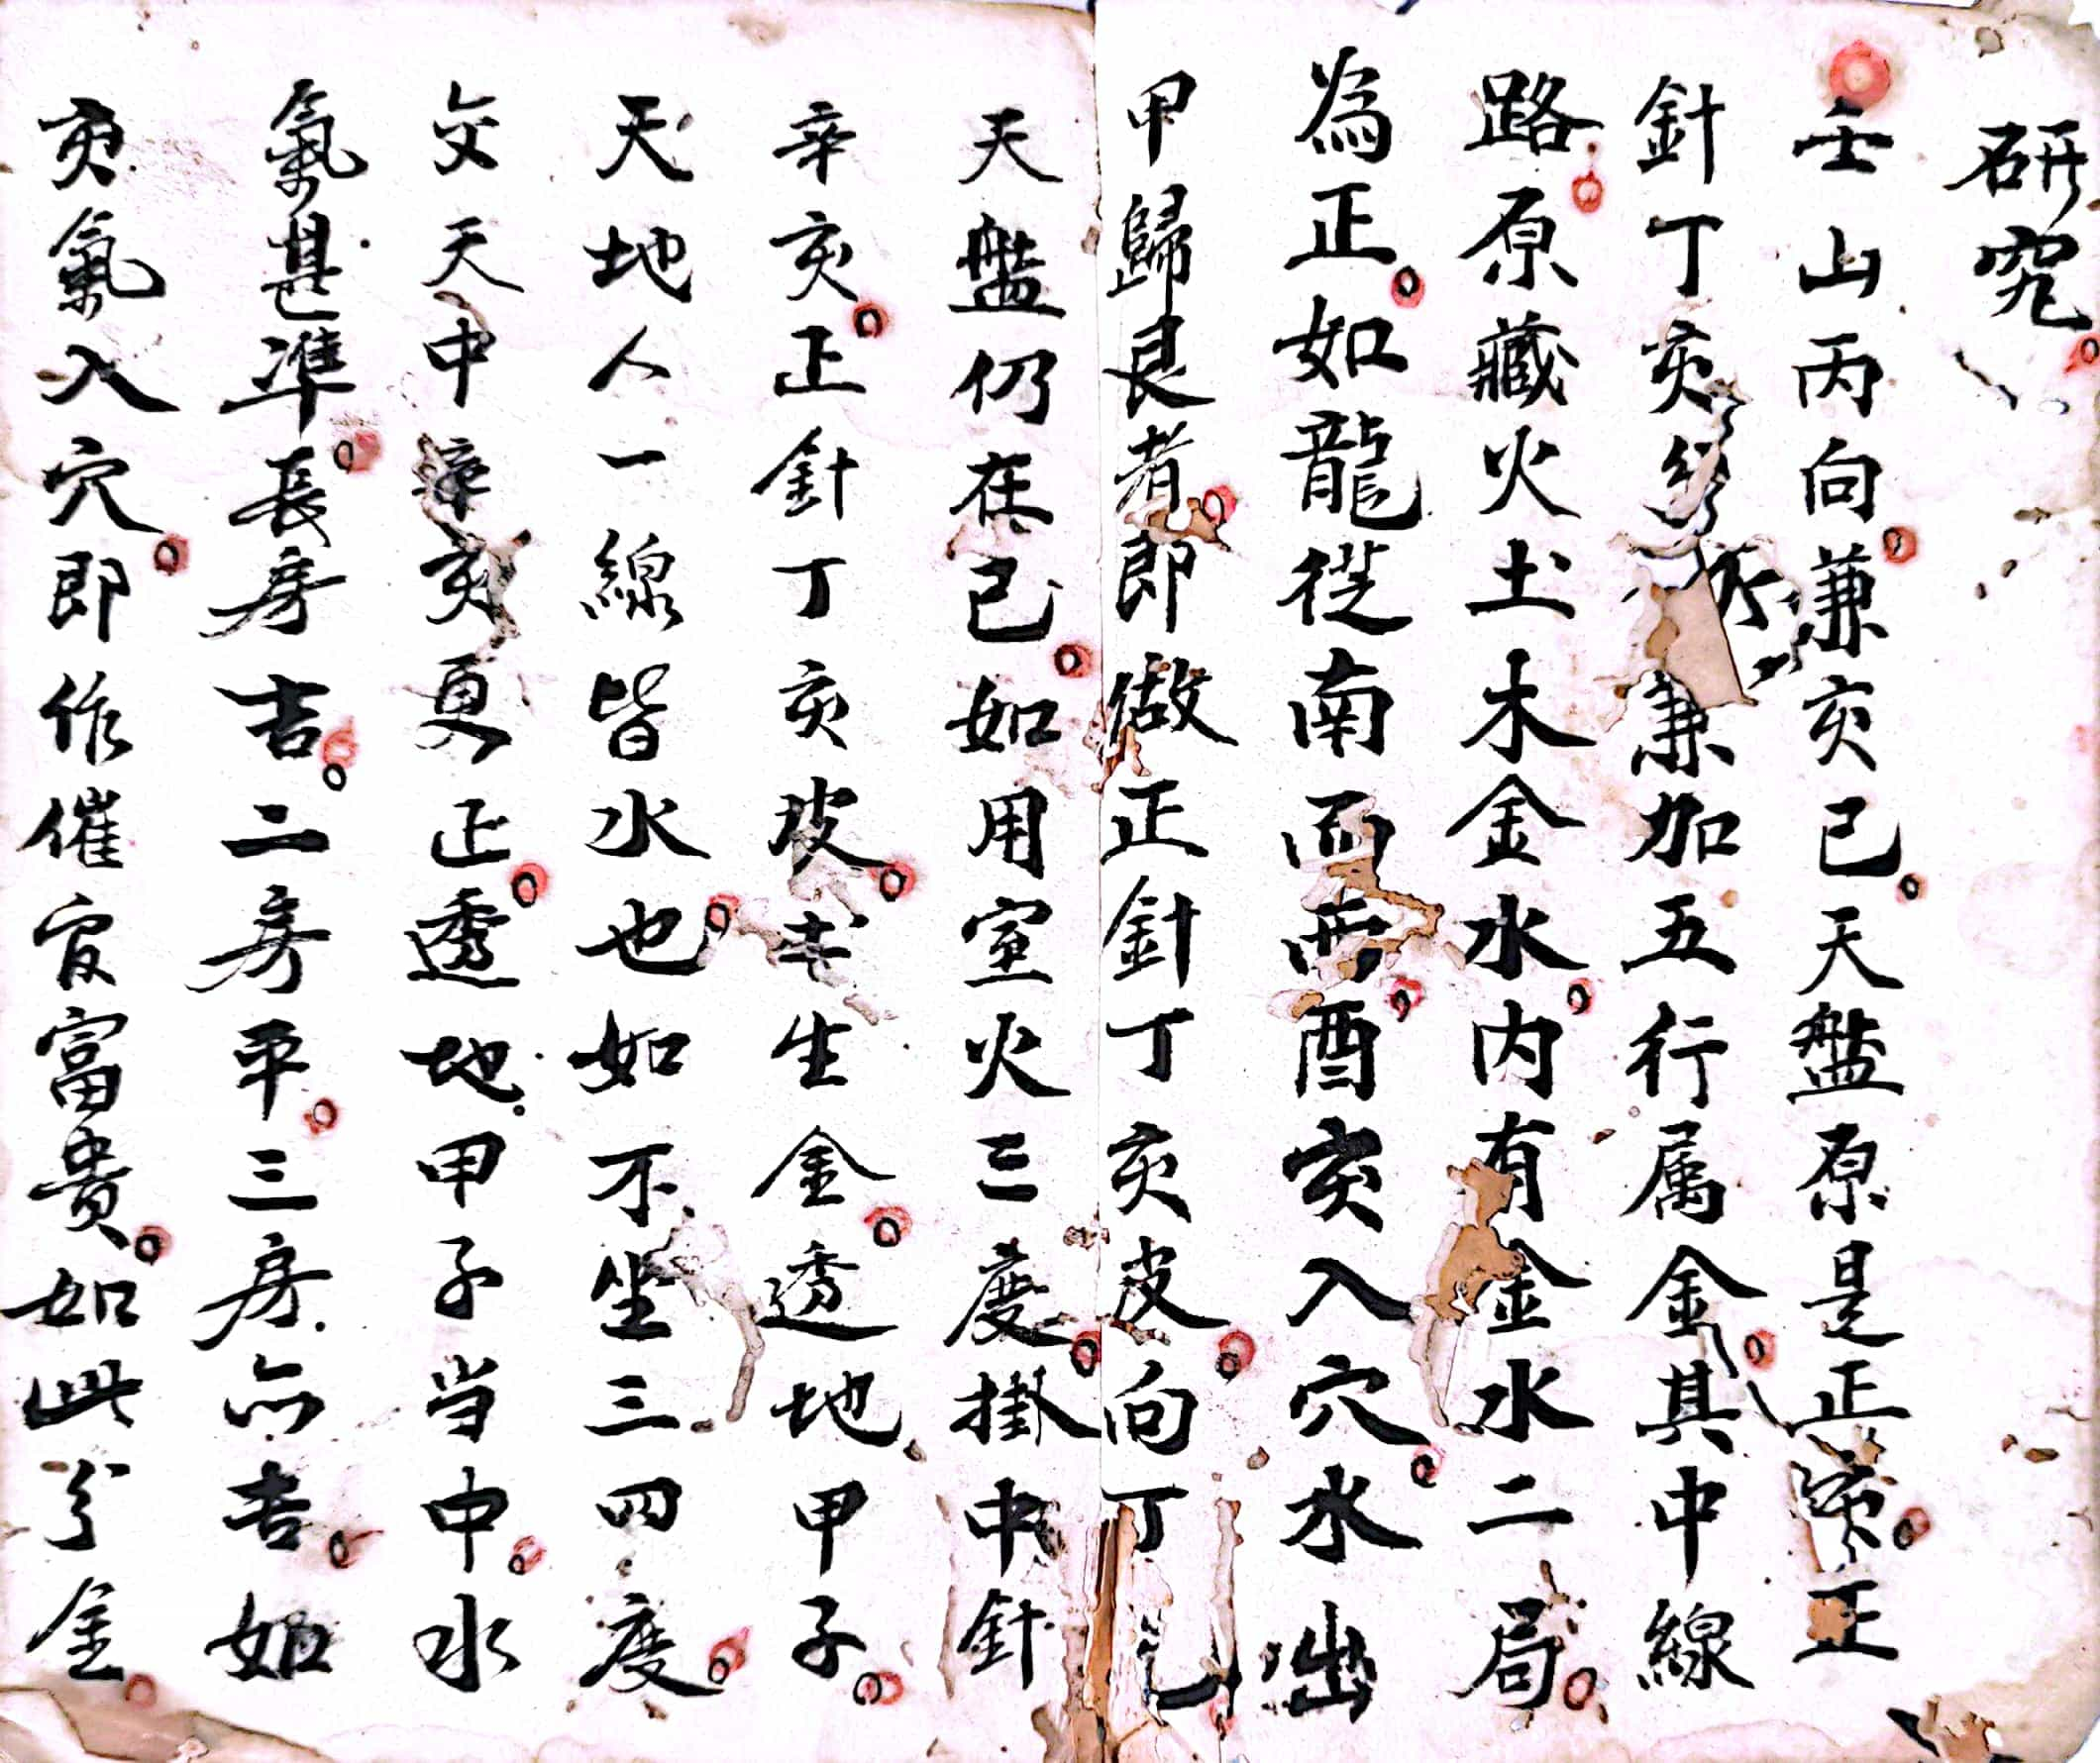 研究
壬山丙向兼亥巳。天盤原是正亥。正
針丁亥 兼加五行属金。其中線
路。原藏火土木金水。内有金水二局。
為正。如龍從南而西。酉亥入穴。水出
甲歸艮者。即做正針丁亥皮。向丁
天盤仍在巳。如用室火三度。掛中針
辛亥。正針丁亥坡。 生金。透地甲子。
天地人一線皆水也。如不坐三四度。
文天中 亥更正。透地甲子当中。水
氣甚準。長房吉。二房平。三房亦吉。如
亥氣入穴。即作催官富貴。如此分金。